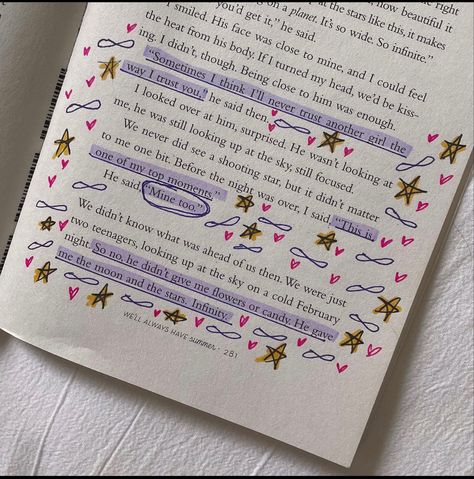 the right
you'd get it," he said. at the stars like this, it makes
on a planet. It's so wide. So infinite."
now beautiful it
I smiled. His face was close to mine, and I could feel
the heat from his body. If I turned my head, we'd be kiss-
ing. I didn't, though. Being close to him was enough.
"Sometimes I think I'll never trust another girl the
way I trust you," he said then.
I looked over at him, surprised. He wasn't looking at
me, he was still looking up at the sky, still focused.
We never did see a shooting star, but it didn't matter
to me one bit. Before the night was over, I said, "This is
one of my top moments."
He said, "Mine too."
We didn't know what was ahead of us then. We were just
two teenagers, looking up at the sky on a cold February
night. So no, he didn't give me flowers or candy. He gave
me the moon and the stars. Infinity.
WE'LL ALWAYS HAVE SUMMER · 281